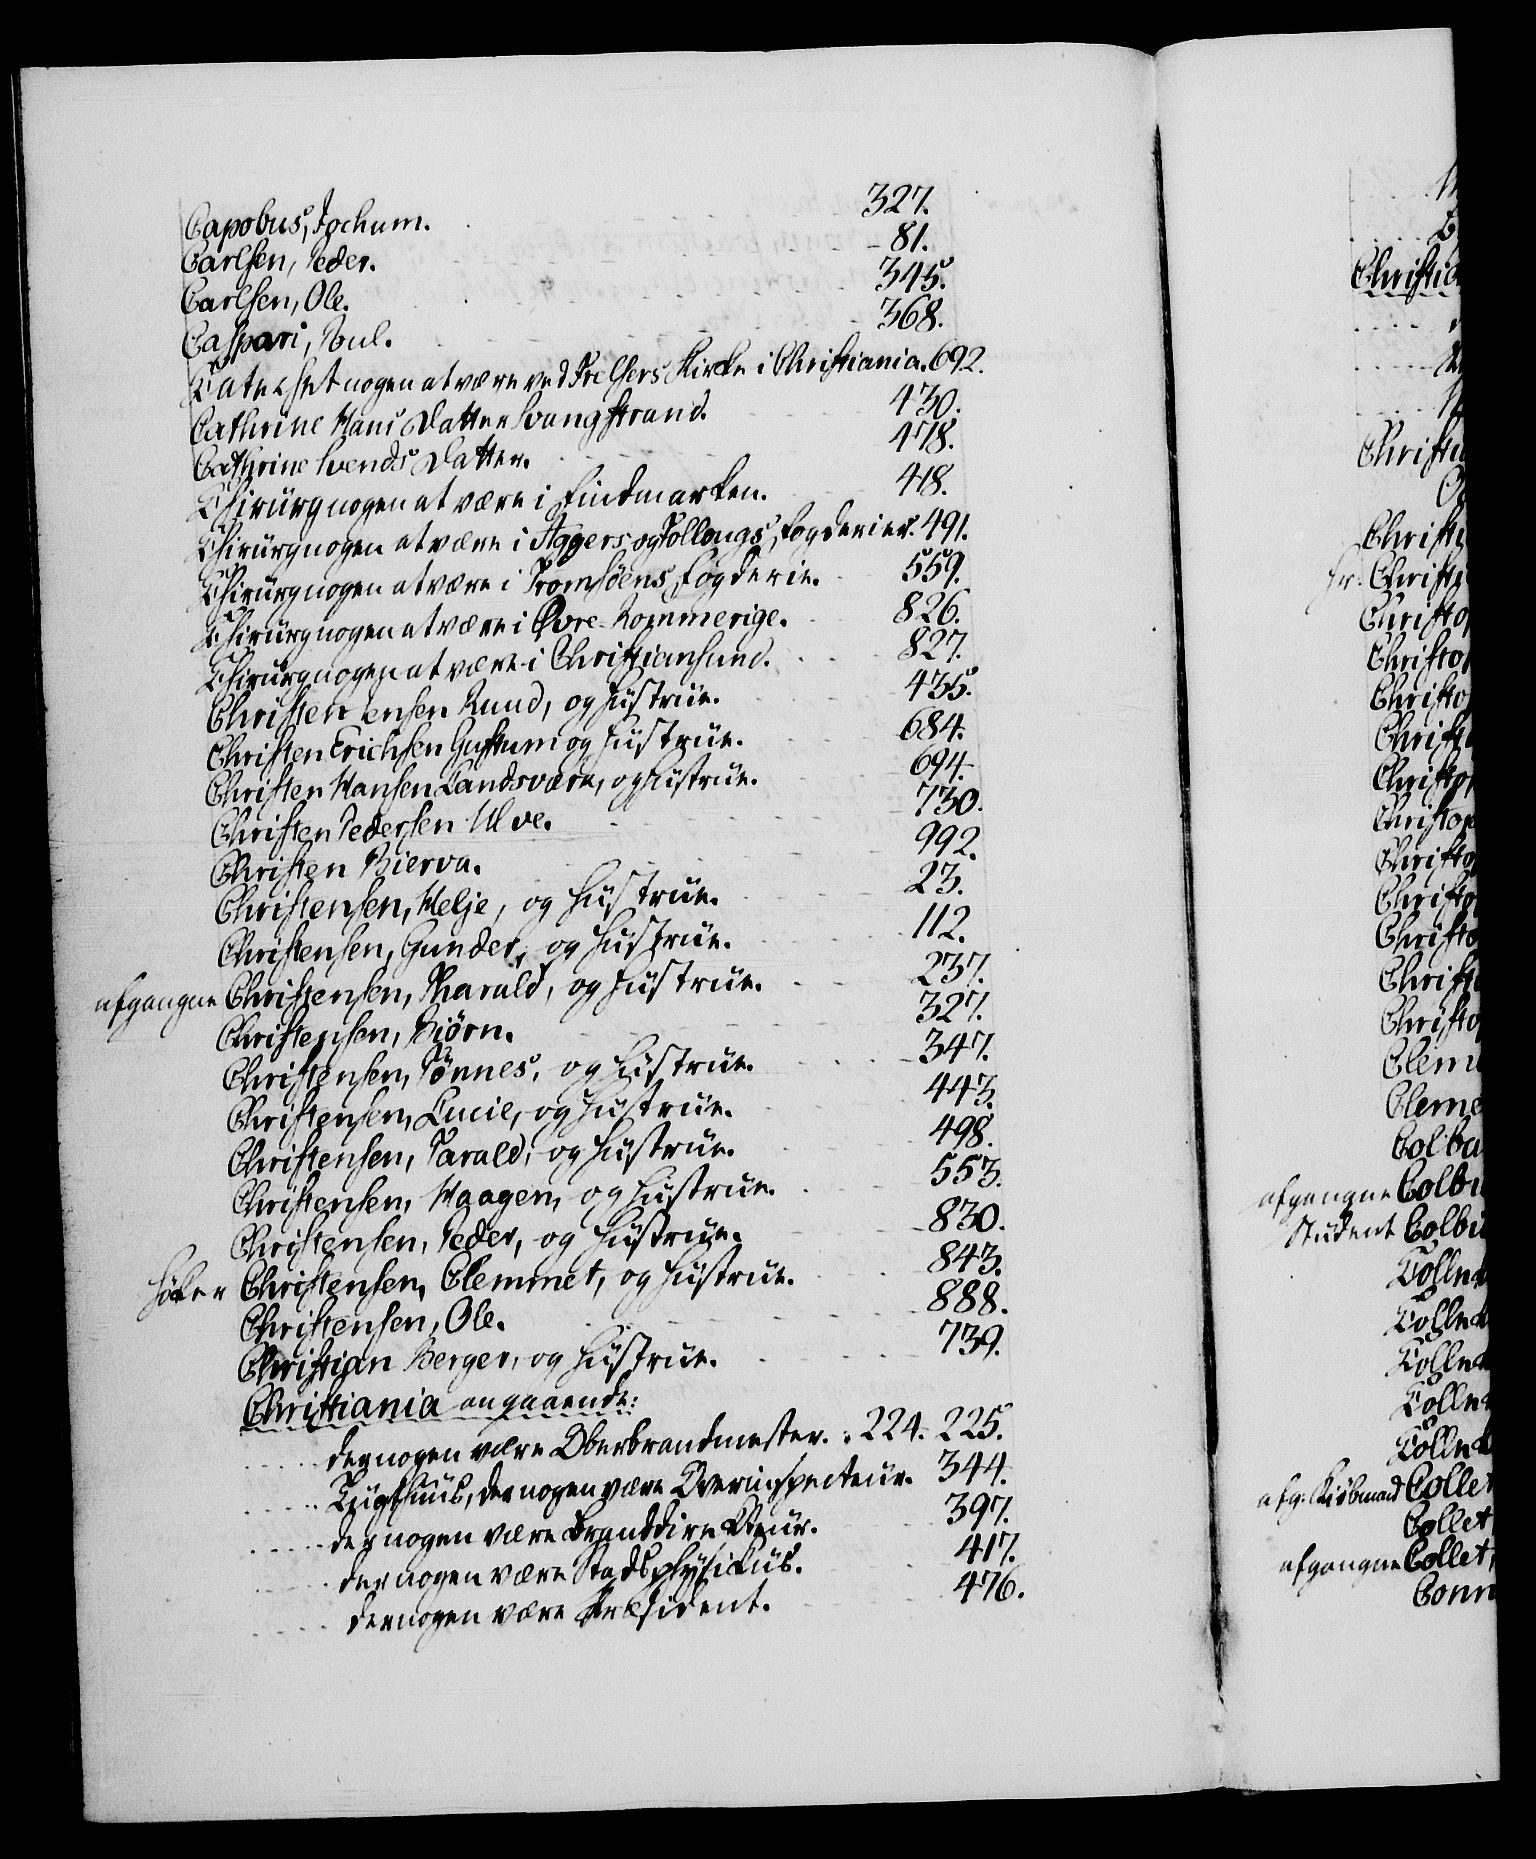 Capobus, Jochum. 327.
Carlsen, Peder. 81.
Carlsen, Ole. 345.
Caspari, Poul. 368.
Catechet nogen at være ved Frelsers Kirke i Christiania. 692.
Cathrine Hans Datter Svangstrand. 430.
Cathrine Svends Datter. 478.
Chirurg nogen at være i Findmarken. 418.
Chirurg nogen at være i Aggers og Follougs Fogderier. 491.
Chirurg nogen at være i Tromsöens Fogderie. 559.
Chirurg nogen at være i Øvre Rommerige. 826.
Chirurg nogen at være i Christiansund. 827.
Christen ensen Ruud, og Hustrue. 435.
Christen Erichsen Gustum og Hustrue. 684.
Christen Hansen Landsværk, og Hustrue. 694.
Christen Pedersen Ulve. 730.
Christen Bierva. 992.
Christensen, Helje, og Hustrue. 23.
Christensen, Gunder, og Hustrue. 112.
afgangne Christensen, Tharald, og Hustrue. 237.
Christensen, Biørn. 327.
Christensen, Tønnes, og Hustrue. 347.
Christensen, Lucie, og Hustrue. 443.
Christensen, Tarald, og Hustrue. 498.
Christensen, Haagen, og Hustrue. 553.
Christensen, Peder, og Hustrue. 830.
Höker Christensen, Clemmet, og Hustrue. 843.
Christensen, Ole. 888.
Christian Berger, og Hustrue. 739.
Christiania angaaende:
der nogen være Oberbrandmester. 224. 225.
Tugthuus, der nogen være Overinspecteur. 344.
der nogen være Branddirecteur. 397.
der nogen være Stadsphysikus. 417.
der nogen være Præsident. 476.
Christia
Christi
Christ
Hr. Christ
Christop
Christo
Christo
Christ
Christo
Christop
Christo
Christo
Christo
Christ
Christo
Clem
Cleme
Colba
afgangne Colbi
Student Colbi
Colle
Colle
Colle
Colle
Colle
afg: Kiöbmand Collet
Collet
afgangne Collet,
Conr